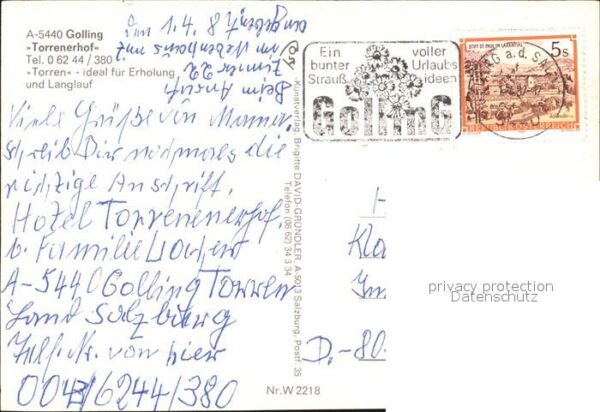 A-5440 Golling
»Torrenerhof«
Tel. 0 62 44 / 380
»Torren« - ideal für Erholung
und Langlauf
1.4.87
Zimmer 22
Beim Anruf
Viele Grüße von Mama.
schreib Dir nochmals die
richtige Anschrift.
Hotel Torrenenerhof.
b. Familie
A-5440 Golling Torren
Land Salzburg
Telf. Nr. von hier
0043/6244/380
Kunstverlag Brigitte DAVID-GRÜNDLER, A-5013 Salzburg, Postf. 35
Telefon (06 62) 34 3 34
Nr. W 2218
Ein bunter Strauß
voller Urlaubsideen
GolliNG
STIFT ST. PAUL IM LAVANTTAL
5s
REPUBLIK ÖSTERREICH
H
Kla
Im
D.-80
privacy protection
Datenschutz